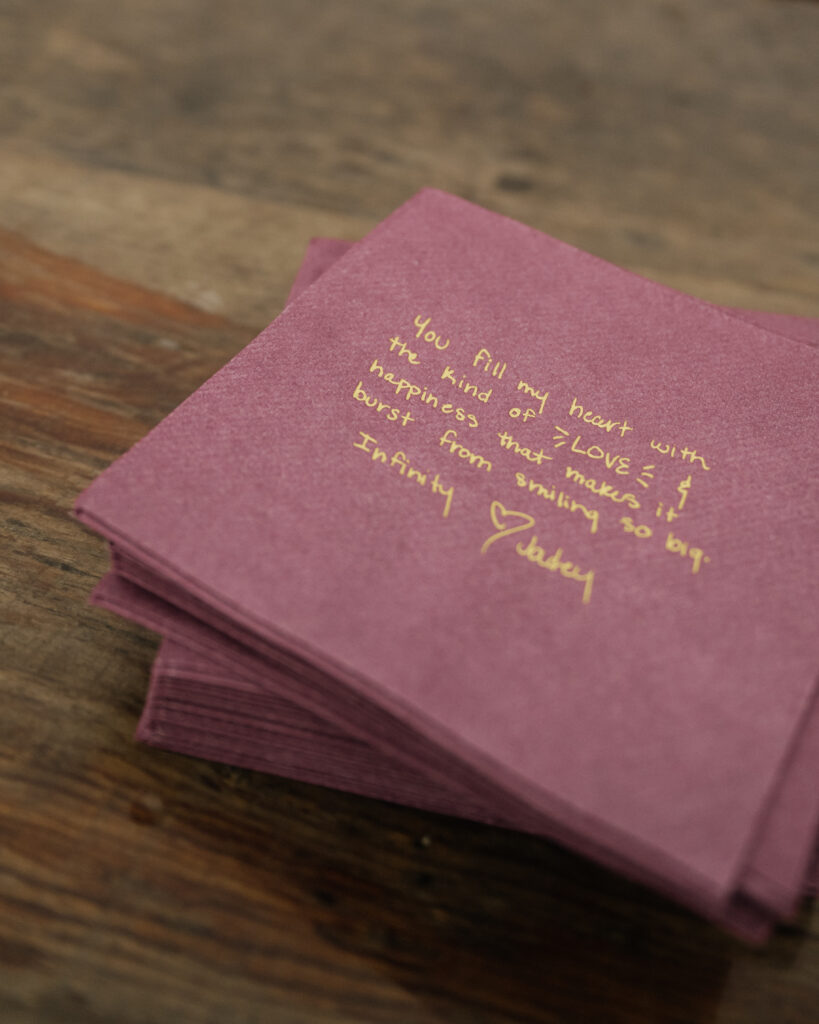 You fill my heart with
the kind of LOVE &
happiness that makes it
burst from smiling so big.
Infinity